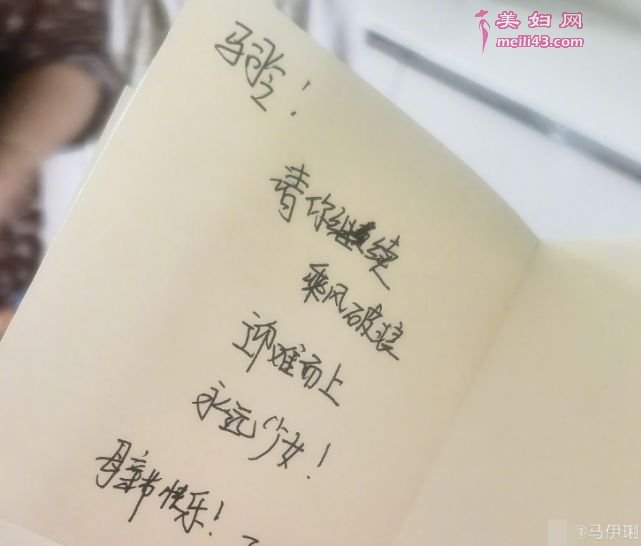 美妇网
meili43.com
马司令！
请你继续
乘风破浪
迎难而上
永远少女！
母童节快乐！
@马伊琍